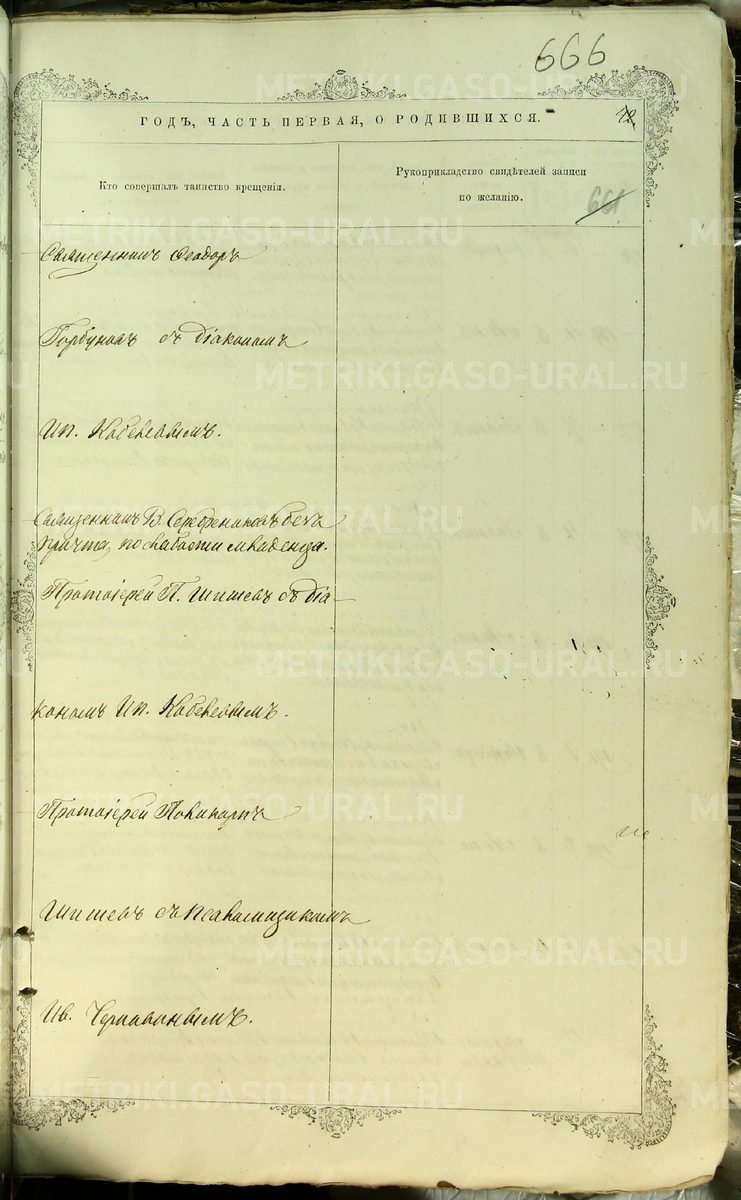 666
ГОДЪ, ЧАСТЬ ПЕРВАЯ, О РОДИВШИХСЯ.
Кто совершалъ таинство крещенія.
Рукоприкладство свидѣтелей записи
по желанію.
661
Священникъ Ѳеодоръ
Горбуновъ съ діакономъ
Ип. Кобелевымъ.
Священникъ В. Серебренниковъ безъ
причта, по слабости младенца.
Протоіерей П. Шишевъ съ діа–
кономъ Ип. Кобелевымъ.
Протоіерей Поликарпъ
Шишевъ съ псаломщикомъ
Ив.
METRIKI.GASO-URAL.RU